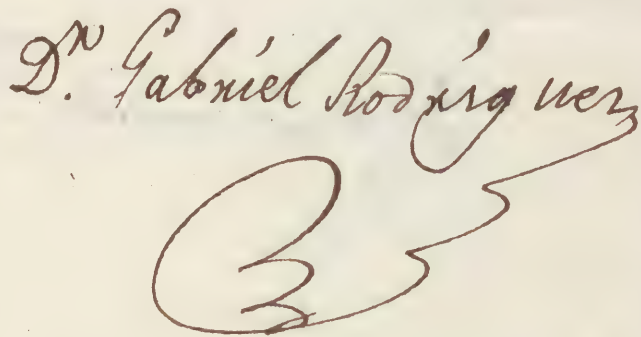 D.ⁿ Gabriel Rodriguez